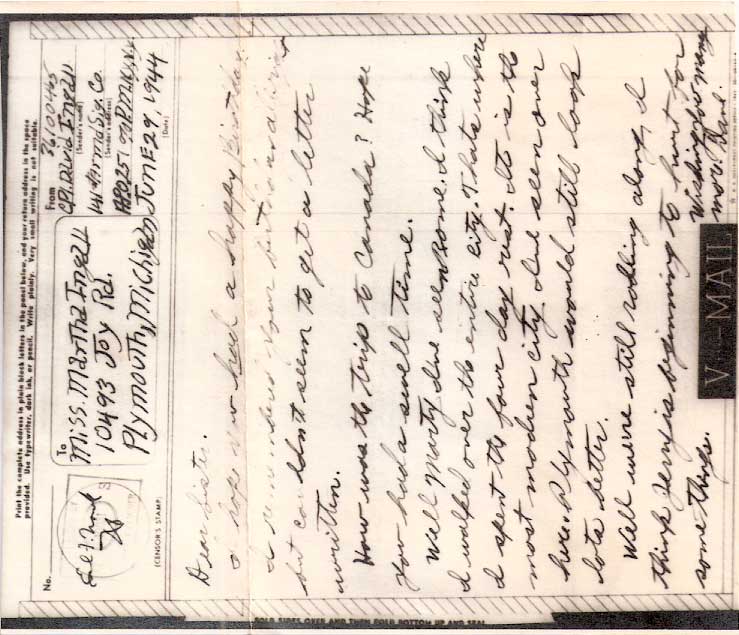 Print the complete address in plain block letters in the panel below, and your return address in the space
provided. Use typewriter, dark ink, or pencil. Write plainly. Very small writing is not suitable.
No.
(CENSOR'S STAMP)
To
Miss. Martha Ingall
10493 Joy Rd.
Plymouth, Michigan
From
36100465
CPL. David Ingall
(Sender's name)
141 Armd Sig. Co.
(Sender's address)
APO 251 % P.M. N.Y. N.Y.
JUNE 29, 1944
(Date)
Dear Sister.
I hope you had a happy birthday.
I remembered your birthday
but couldn't seem to get a letter
written.
How was the trip to Canada? Hope
you had a swell time.
Well Marty I've seen Rome. I think
I walked over the entire city. That's where
I spent the four day rest. It's is the
most modern city I've seen over
here. Plymouth would still look
lots better.
Well we're still rolling along, I
think Jerry is beginning to hurt for
some things.
Wishing you many
more. Dave.
V···—MAIL
FOLD SIDES OVER AND THEN FOLD BOTTOM UP AND SEAL